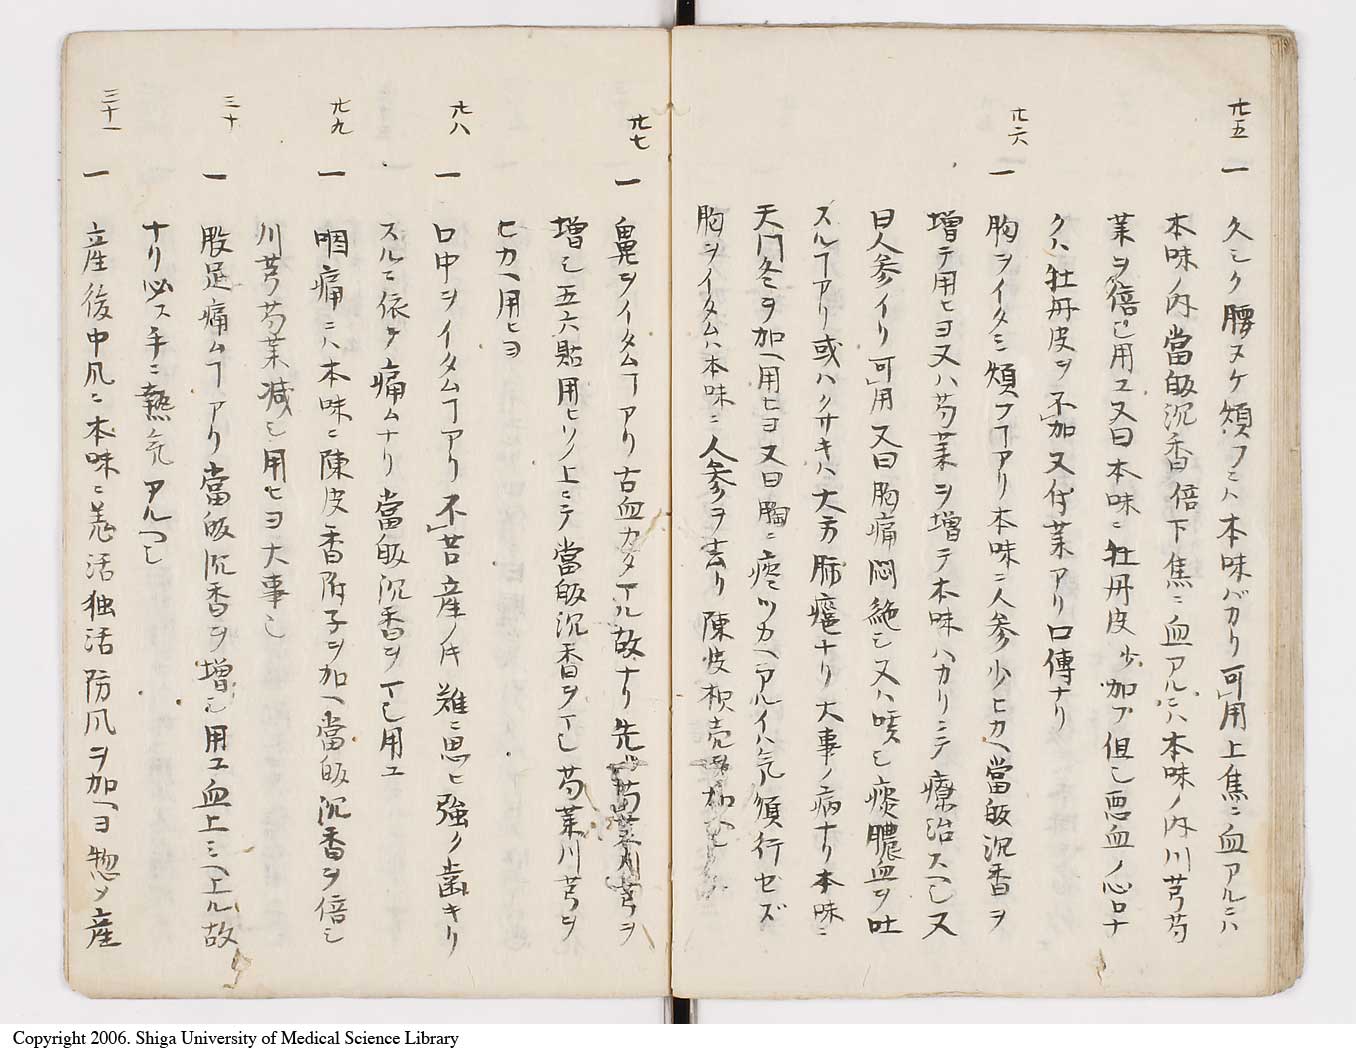 廿五
一 久シク腰ヌケ煩フニハ本味バカリ可用上焦ニ血アルニハ
本味ノ内當皈沉香倍下焦ニ血アルニハ本味ノ内川芎芍
薬ヲ倍乄用ユ又曰本味ニ牡丹皮少加フ但シ悪血ノ心ロナ
クハ牡丹皮ヲ不加又付薬アリ口傳ナリ
廿六
一 胸ヲイタミ煩フヿアリ本味ニ人参少ヒカヘ當皈沉香ヲ
増テ用ヒヨ又ハ芍薬ヲ増テ本味ハカリニテ療治スヘシ又
曰人参イリ可用又曰胸痛悶絶シ又ハ咳シ痰膿血ヲ吐
スルヿアリ或ハクサキハ大方肺癰ナリ大事ノ病ナリ本味ニ
天門冬ヲ加ヘ用ヒヨ又曰胸ニ痰ツカヘアルイハ氣順行セズ
胸ヲイタムハ本味ニ人参ヲ去リ陳皮枳売加
廿七
一 鼻ヲイタムヿアリ古血カタマル故ナリ先ツ芍薬川芎ヲ
増シ五六貼用ヒソノ上ニテ當皈沉香ヲマシ芍薬川芎ヲ
ヒカヘ用ヒヨ
廿八
一 口中ヲイタムヿアリ不苦産ノ時難ニ思ヒ強ク歯キリ
スルニ依テ痛ムナリ當皈沉香ヲマシ用ユ
廿九
一 咽痛ニハ本味ニ陳皮香附子ヲ加ヘ當皈沉香ヲ倍シ
川芎芍薬減シ用ヒヨ大事也
三十
一 股足痛ムヿアリ當皈沉香ヲ増シ用ユ血上ミヘ上ル故
ナリ必ス手ニ熱氣アルヘシ
三十一
一 産後中風ニ本味ニ羗活独活防風ヲ加ヘヨ惣メ産
Copyright 2006. Shiga University of Medical Science Library